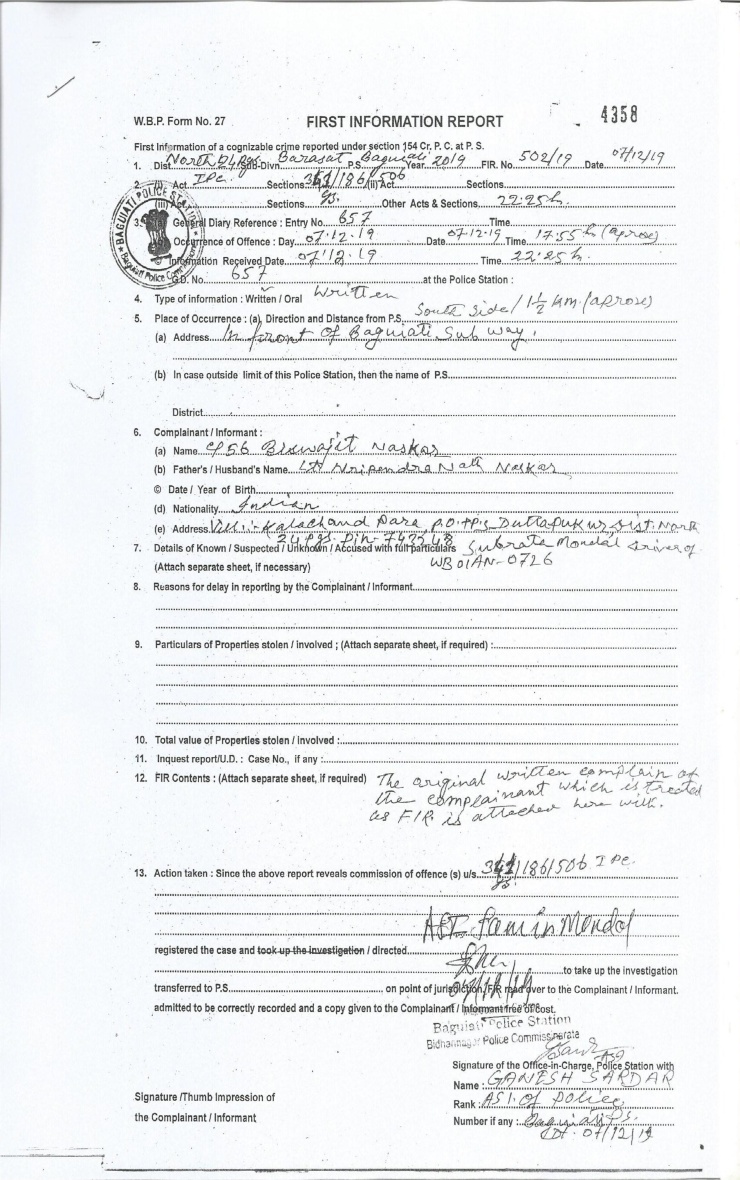 4358
W.B.P. Form No. 27 FIRST INFORMATION REPORT
First Information of a cognizable crime reported under section 154 Cr. P. C. at P. S.
1. Dist. North 24 Pgs. Sub-Divn. Barasat P.S. Baguiati Year 2019 FIR. No. 502/19 Date 07/12/19
2. (i) Act IPC. Sections 341/186/506 (ii) Act Sections
(iii) Act Sections Other Acts & Sections 22.25 h.
3. General Diary Reference : Entry No. 657 Time
Occurrence of Offence : Day 07.12.19 Date 07.12.19 Time 17.55 h (aprox)
© Information Received Date 07.12.19 Time 22.25 h.
G.D. No. 657 at the Police Station :
BAGUIATI POLICE STATION
4. Type of information : Written / Oral Written
5. Place of Occurrence : (a) Direction and Distance from P.S. South Side / 1 1/2 km. (aprox)
(a) Address In front of Baguiati Sub way.
(b) In case outside limit of this Police Station, then the name of P.S.
District
6. Complainant / Informant :
(a) Name Biswajit Naskar
(b) Father's / Husband's Name Lt Nripendra Nath Naskar
© Date / Year of Birth
(d) Nationality Indian
(e) Address Vill:- Kalachand Para, P.O.+P.S. Duttapukur, Dist. North
24 Pgs. Pin-743248
7. Details of Known / Suspected / Unknown / Accused with full particulars Subrata Mondal driver of
(Attach separate sheet, if necessary) WB01AN-0726
8. Reasons for delay in reporting by the Complainant / Informant
9. Particulars of Properties stolen / involved ; (Attach separate sheet, if required) :
10. Total value of Properties stolen / involved :
11. Inquest report/U.D. : Case No., if any :
12. FIR Contents : (Attach separate sheet, if required) The original written complain of
the complainant which is treated
as FIR is attached here with.
13. Action taken : Since the above report reveals commission of offence (s) u/s. 341/186/506 IPC.
ASI Mondal
registered the case and took up the investigation / directed
to take up the investigation
transferred to P.S. on point of jurisdiction, FIR read over to the Complainant / Informant.
07/12/19
admitted to be correctly recorded and a copy given to the Complainant / Informant free of cost.
Baguiati Police Station
Bidhannagar Police Commissionarate
Signature of the Office-in-Charge, Police Station with
Name : GANESH SARDAR
Signature /Thumb Impression of
Rank : ASI. of Police.
the Complainant / Informant
Number if any : Baguiati P.S.
Dt. 07/12/19